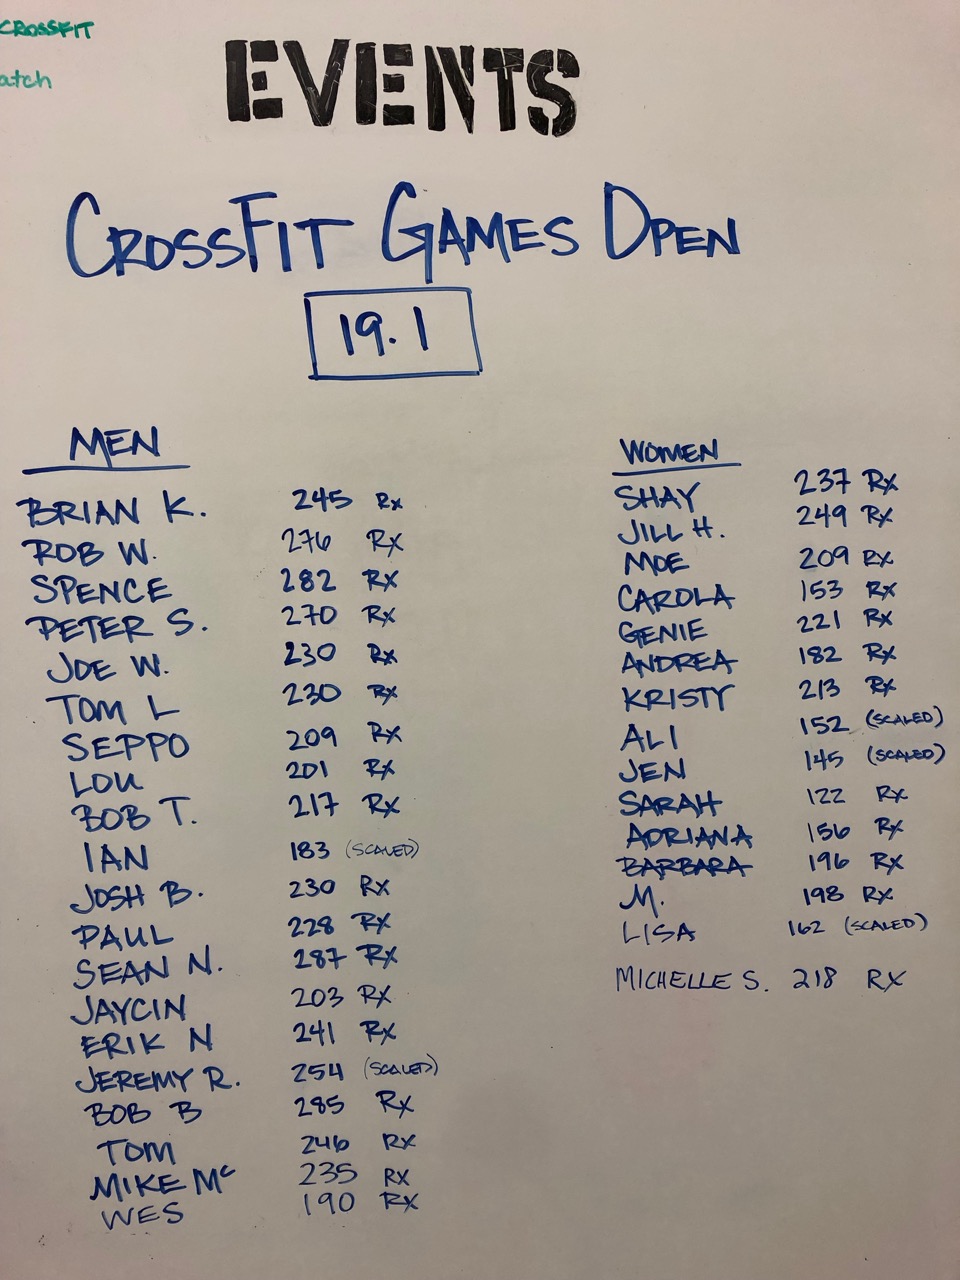 CROSSFIT
atch
EVENTS
CROSSFIT GAMES OPEN
19.1
MEN
BRIAN K. 245 Rx
ROB W. 276 Rx
SPENCE 282 Rx
PETER S. 270 Rx
JOE W. 230 Rx
TOM L 230 Rx
SEPPO 209 Rx
LOU 201 Rx
BOB T. 217 Rx
IAN 183 (SCALED)
JOSH B. 230 Rx
PAUL 228 Rx
SEAN N. 287 Rx
JAYCIN 203 Rx
ERIK N 241 Rx
JEREMY R. 254 (SCALED)
BOB B 285 Rx
TOM 246 Rx
MIKE Mc 235 Rx
WES 190 RX
WOMEN
SHAY 237 Rx
JILL H. 249 Rx
MOE 209 Rx
CAROLA 153 Rx
GENIE 221 Rx
ANDREA 182 Rx
KRISTY 213 Rx
ALI 152 (SCALED)
JEN 145 (SCALED)
SARAH 122 Rx
ADRIANA 156 Rx
BARBARA 196 Rx
M. 198 Rx
LISA 162 (SCALED)
MICHELLE S. 218 RX